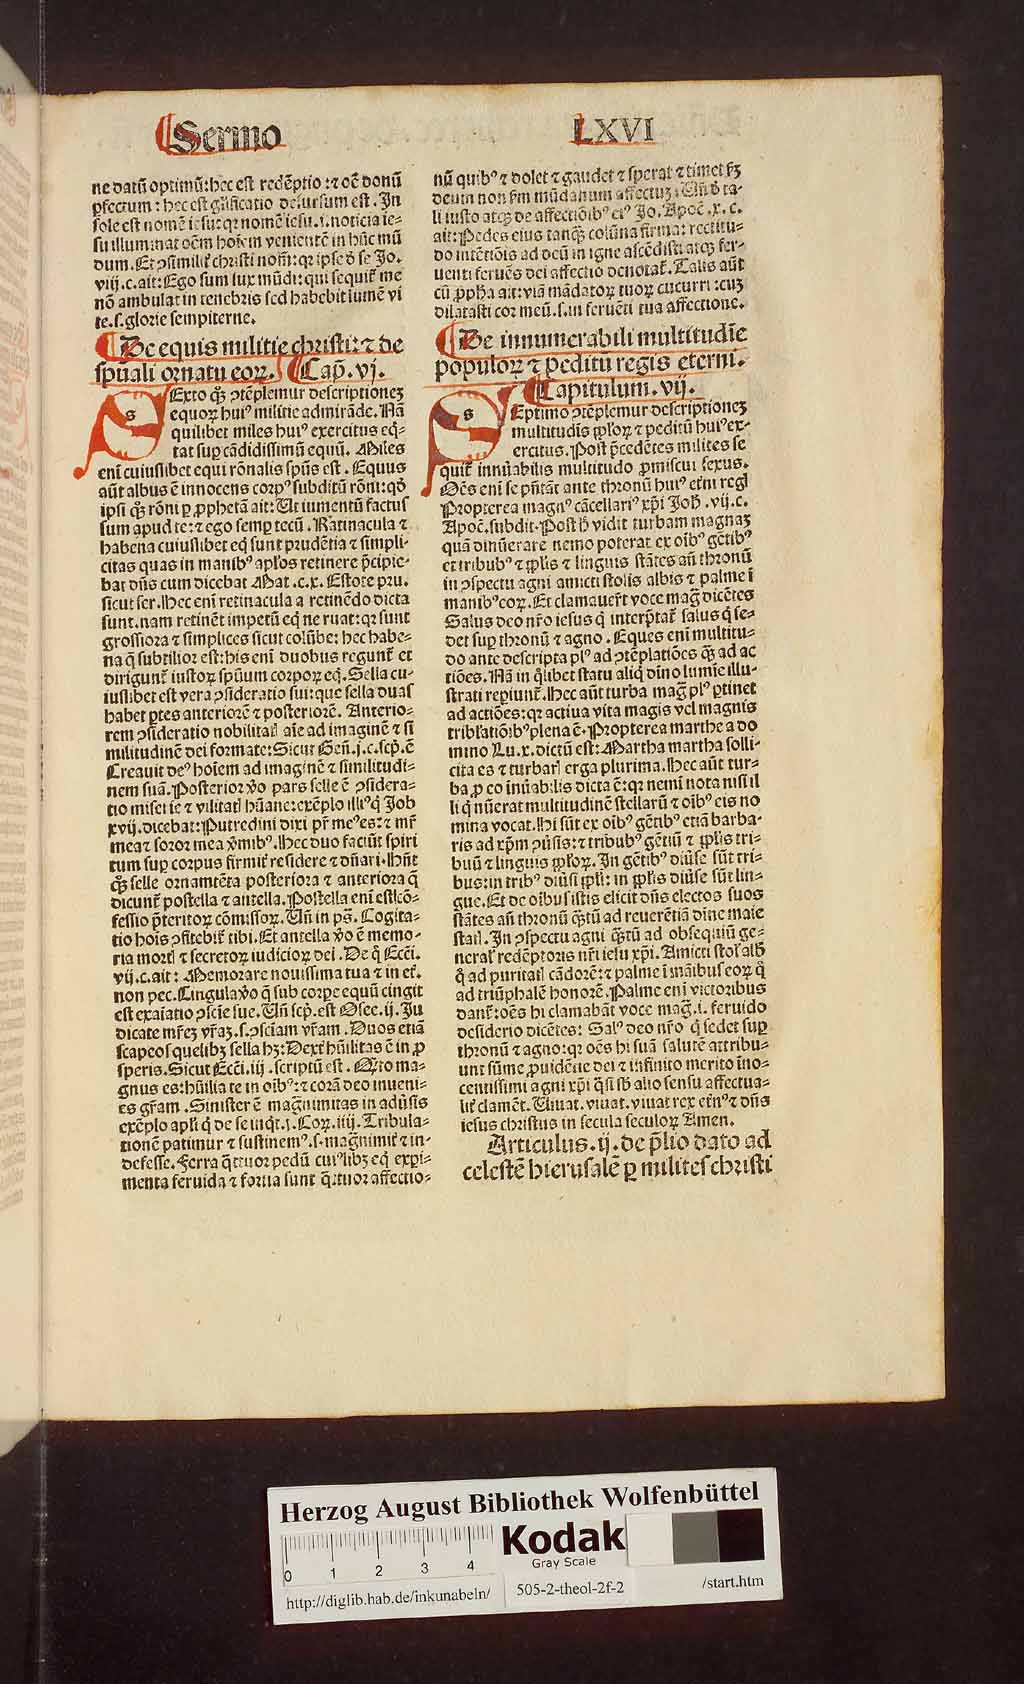 Sermo LXVI
ne datū optimū: hec est redēptio: ⁊ oē donū
ꝑfectum: hec est gl̄ificatio desursum est. In
sole est nomē iesu: qꝛ nomē iesu .i. noticia ie-
su illuminat oēm hoīem venientē in hūc mū
dum. Et ꝯsimilit̄ christi nomē: qꝛ ipse ð se Jo.
viij. c. ait: Ego sum lux mūdi: qui sequit̄ me
nō ambulat in tenebris sed habebit lumē vi
te .s. glorie sempiterne.
De equis militie christi: ⁊ de
spūali ornatu eoꝝ. Cap. vj.
SExto qꝫ ꝯtēplemur descriptioneꝫ
equoꝝ huiꝰ militie admirāde. Nā
quilibet miles huiꝰ exercitus eq̄-
tat suꝑ cādidissimū equū. Miles
enī cuiuslibet equi rōnalis spūs est. Equus
aūt albus ē innocens corpꝰ subditū rōni: qð
ipsi qꝫ rōni ꝑ ꝓphetā ait: Ut iumentū factus
sum apud te: ⁊ ego semꝑ tecū. Ratinacula ⁊
habena cuiuslibet eq̄ sunt prudētia ⁊ simpli-
citas quas in manibꝰ apl̄os retinere p̄cipie-
bat dn̄s cum dicebat Mat. c. x. Estote pru.
sicut ser. Hec enī retinacula a retinēdo dicta
sunt. nam retinēt impetū eq̄ ne ruat: qꝛ sunt
grossiora ⁊ simplices sicut colūbe: hec habe-
na q̄ subtilior est: his enī duobus regunt̄ et
dirigunt̄ iustoꝝ spūum corpoꝝ eq̄. Sella cu-
iuslibet est vera ꝯsideratio sui: que sella duas
habet ꝑtes anteriorē ⁊ posteriorē. Anterio-
rem ꝯsideratio nobilitatꝭ aīe ad imaginē ⁊ si
militudinē dei formate: Sicut Geñ. j. c. scp̄. ē
Creauit deꝰ hoīem ad imaginē ⁊ similitudi-
nem suā. Posterior v̄o pars selle ē ꝯsidera-
tio miserie ⁊ vilitatꝭ hūane: exēplo illiꝰ q̄ Job
xvij. dicebat: Putredini dixi pr̄ meꝰ es: ⁊ mr̄
mea ⁊ soror mea v̄mibꝰ. Hec duo faciūt spiri
tum suꝑ corpus firmit̄ residere ⁊ dn̄ari. Hn̄t
qꝫ selle ornamēta posteriora ⁊ anteriora q̄
dicunt̄ postella ⁊ antella. Postella enī est cō-
fessio p̄teritoꝝ cōmissoꝝ. Un̄ in ps̄. Cogita-
tio hoīs ꝯfitebit̄ tibi. Et antella v̄o ē memo-
ria mortꝭ ⁊ secretoꝝ iudicioꝝ dei. De q̄ Ecc̄i.
vij. c. ait: Memorare nouissima tua ⁊ in et̄.
non pec. Cingula v̄o q̄ sub corpe equū cingit
est exaiatio ꝯscīe sue. Un̄ scp̄. est Osee. ij. Ju
dicate mr̄eꝫ vr̄aꝫ .s. ꝯsciam vr̄am. Duos etiā
scapeos quelibꝫ sella hꝫ: Dext̄ hūilitas ē in ꝓ
speris. Sicut Ecc̄i. iij. scriptū est. Qn̄to ma-
gnus es: hūilia te in oībꝰ: ⁊ corā deo inueni-
es gr̄am. Sinister ē magnīmitas in adūsis
exēplo apl̄i q̄ de se inq̄t. j. Coꝝ. iiij. Tribula-
tionē patimur ⁊ sustinemꝰ .s. magnīmit̄ ⁊ in-
defesse. Ferra q̄ttuor pedū cuiꝰlibꝫ eq̄ expi-
menta feruida ⁊ fortia sunt q̄ttuor affectio-
nū quibꝰ ⁊ dolet ⁊ gaudet ⁊ sperat ⁊ timet ẜꝫ
deum non ẜm mūdanum affectuꝫ. Un̄ ð ta-
li iusto atqꝫ de affectiōibꝰ eiꝰ Jo. Apoc̄. x. c.
ait: Pedes eius tanqꝫ colūna firma: rectitu-
do intētiōis ad deū in igne ascēdisti atqꝫ fer-
uenti feruēs dei affectio denotat̄. Talis aūt
cū ꝓpħa ait: viā mādatoꝝ tuoꝝ cucurri: cuꝫ
dilatasti cor meū .s. in feruēti tua affectione.
De innumerabili multitudīe
populoꝝ ⁊ peditū regis eterni.
Capitulum. vij.
SEptimo ꝯtēplemur descriptioneꝫ
multitudīs ppl̄oꝝ ⁊ peditū huiꝰ ex-
ercitus. Post p̄cedētes milites se
quit̄ innūabilis multitudo ꝓmiscui sexus.
Oēs enī se pn̄tāt ante thronū huiꝰ etn̄i regꝭ
Propterea magnꝰ cācellariꝰ xp̄i Joħ. vij. c.
Apoc̄. subdit. Post ħ vidit turbam magnaꝫ
quā dinūerare nemo poterat ex oībꝰ gētibꝰ
et tribubꝰ ⁊ ppl̄is ⁊ linguis stātes an̄ thronū
in ꝯspectu agni amicti stolis albis ⁊ palme ī
manibꝰ eoꝝ. Et clamauer̄t voce maḡ dicētes
Salus deo nr̄o iesus q̄ interp̄tat̄ salus q̄ se-
det suꝑ thronū ⁊ agno. Eques enī multitu-
do ante descripta plꝰ ad ꝯtēplatiōes qꝫ ad ac
tiōes. Nā in q̄libet statu aliq̄ dīno lumīe illu-
strati repiunt̄. Hec aūt turba maḡ plꝰ ꝑtinet
ad actiōes: qꝛ actiua vita magis vel magnis
tribl̄atiōibꝰ plena ē. Propterea marthe a do
mino Lu. x. dictū est: Martha martha solli-
cita es ⁊ turbarꝭ erga plurima. Hec aūt tur-
ba ꝓ eo inūabilis dicta ē: qꝛ nemi nota nisi il
li q̄ nūerat multitudinē stellarū ⁊ oībꝰ eis no
mina vocat. Hi sūt ex oībꝰ gētibꝰ etiā barba-
ris ad xp̄m ꝯūsis: ⁊ tribubꝰ gētiū ⁊ ppl̄is tri-
buū ⁊ linguis ppl̄oꝝ. In gētibꝰ diūse sūt tri-
bus: in tribꝰ diūsi ppl̄i: in ppl̄is diūse sūt lin-
gue. Et de oībus istis elicit dn̄s electos suos
stātes an̄ thronū qꝫtū ad reuerētiā dīne maie
statꝭ. In ꝯspectu agni qꝫtū ad obsequiū ge-
neralꝭ redēptoris nr̄i iesu xp̄i. Amicti stol̄ alb̄
q̄ ad puritatꝭ cādorē: ⁊ palme ī māibus eoꝝ q̄
ad triūphalē honorē. Palme enī victoribus
dant̄: oēs hi clamabāt voce maḡ .i. feruido
desiderio dicētes: Salꝰ deo nr̄o q̄ sedet suꝑ
thronū ⁊ agno: qꝛ oēs hi suā salutē attribu-
unt sūme ꝓuidētie dei ⁊ infinito merito īno-
centissimi agni xp̄i q̄si sb̄ alio sensu affectua-
lit̄ clamēt. Uiuat. viuat. viuat rex etn̄ꝰ ⁊ dn̄s
iesus christus in secula seculoꝝ Amen.
Articulus. ij. de p̄lio dato ad
celestē hierusalē ꝑ milites christi
Herzog August Bibliothek Wolfenbüttel
Kodak
Gray Scale
0 1 2 3 4
http://diglib.hab.de/inkunabeln/ 505-2-theol-2f-2 /start.htm